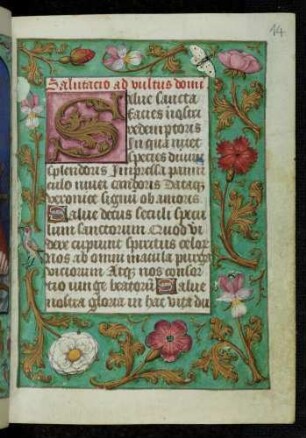 14
Salutacio ad vultus domi
Salue sancta
facies nostri
redemptoris
In qua nitet
species diuini
splendoris Impressa panni
culo niuei candoris Dataq;
veronice signū ob amoris
Salue decus seculi specu
lum sanctorum Quod vi
dere cupiunt spiritus celor
Nos ab omni macula purga
viciorum Atq; nos consor
cio iunge beatorū Salue
nostra gloria in hac vita du